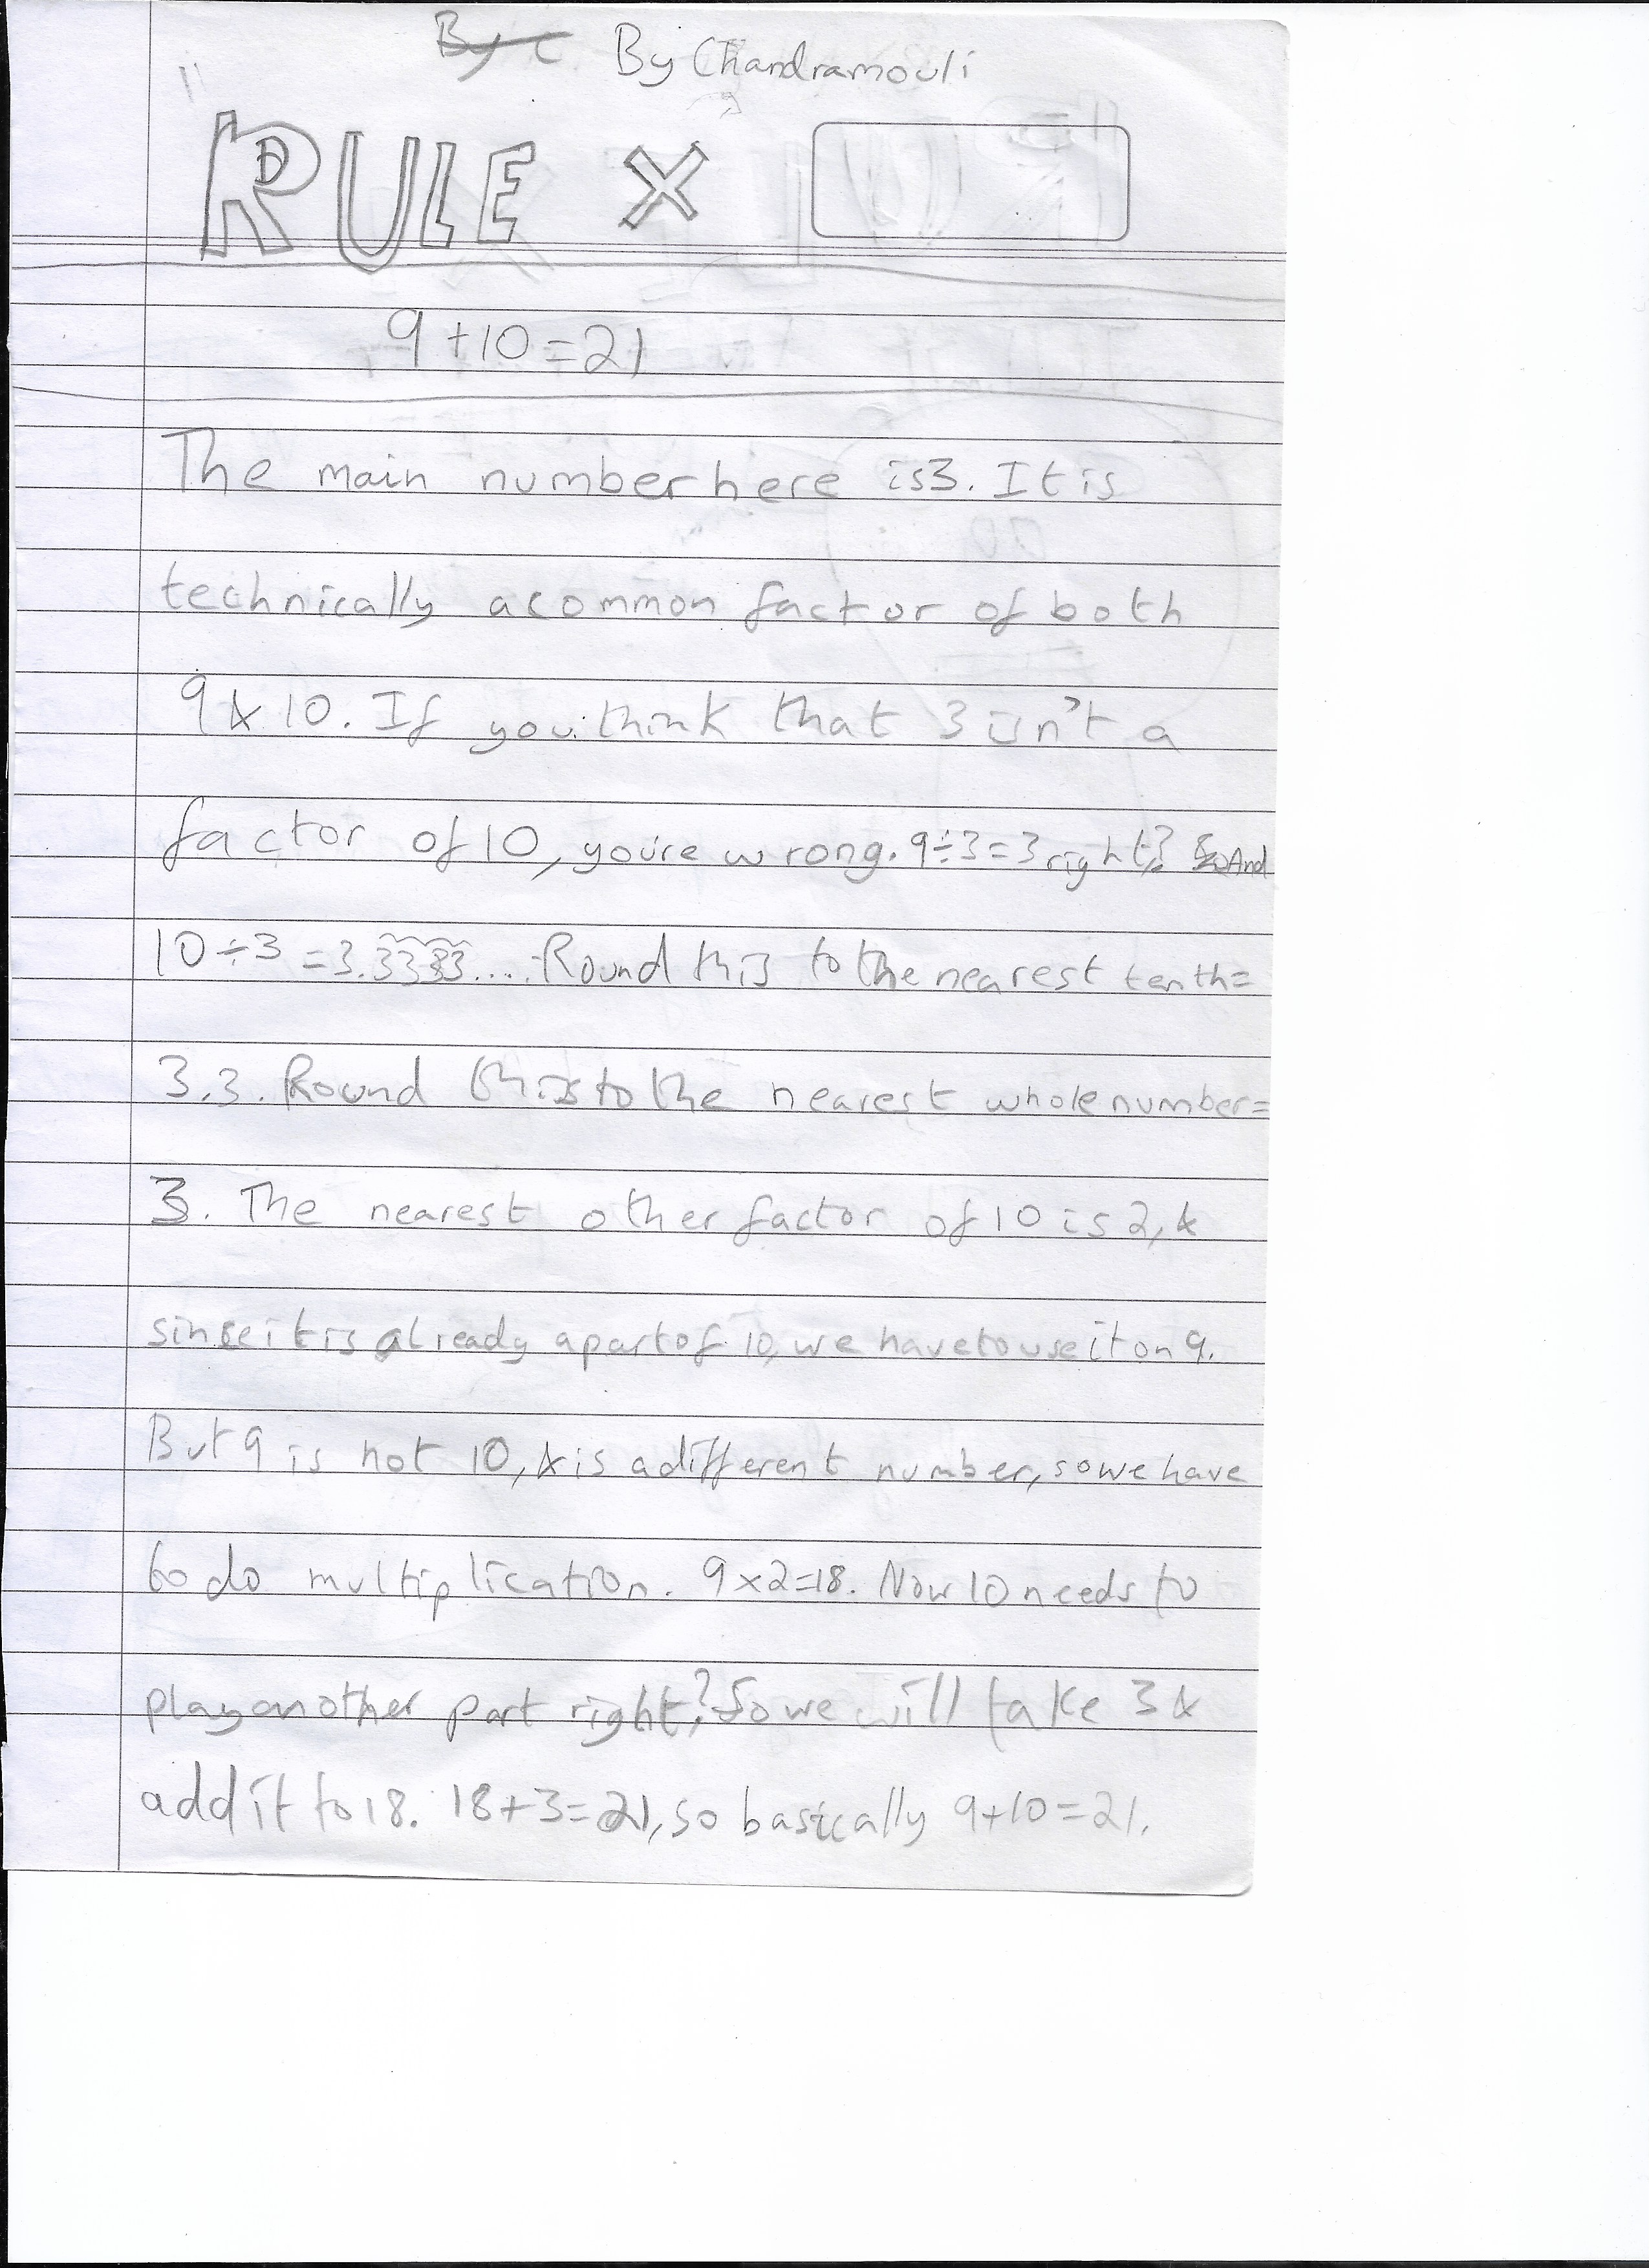 By C By Chandramouli
RULE X
9+10=21
The main number here is 3. It is
technically a common factor of both
9 & 10. If you think that 3 isn't a
factor of 10, you're wrong. 9÷3=3 right? So And
10÷3=3.3333.... Round this to the nearest tenth=
3.3. Round this to the nearest whole number=
3. The nearest other factor of 10 is 2, &
since it is already a part of 10, we have to use it on 9.
But 9 is not 10, & is a different number, so we have
to do multiplication. 9x2=18. Now 10 needs to
play another part right? So we will take 3 &
add it to 18. 18+3=21, so basically 9+10=21.